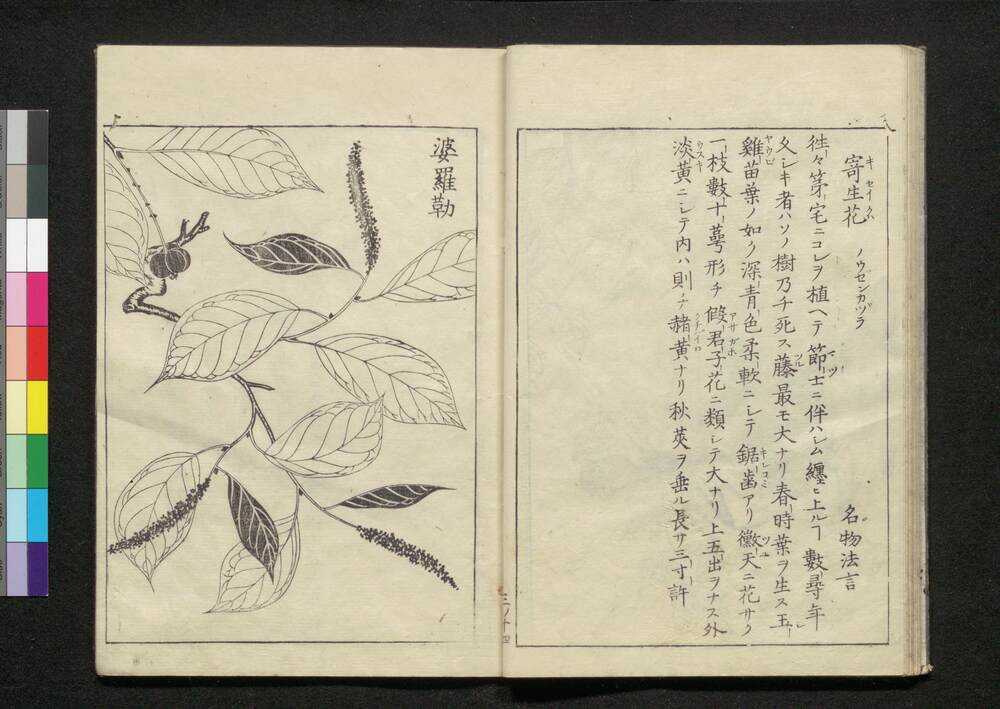 寄生花 ノウゼンカヅラ 名物法言
往々第宅ニコレヲ植ヘテ節士ニ伴ハシム纏ヒ上ルヿ數尋年
久シキ者ハソノ樹乃チ死ス藤最モ大ナリ春時葉ヲ生ス玉
雞苗葉ノ如ク深青色柔軟ニシテ鋸歯アリ黴天ニ花サク
一枝數十萼形チ假君子花ニ類シテ大ナリ上五出ヲナス外
淡黄ニシテ内ハ則チ赭黄ナリ秋莢ヲ垂ル長サ三寸許
婆羅勒
三ノ十四